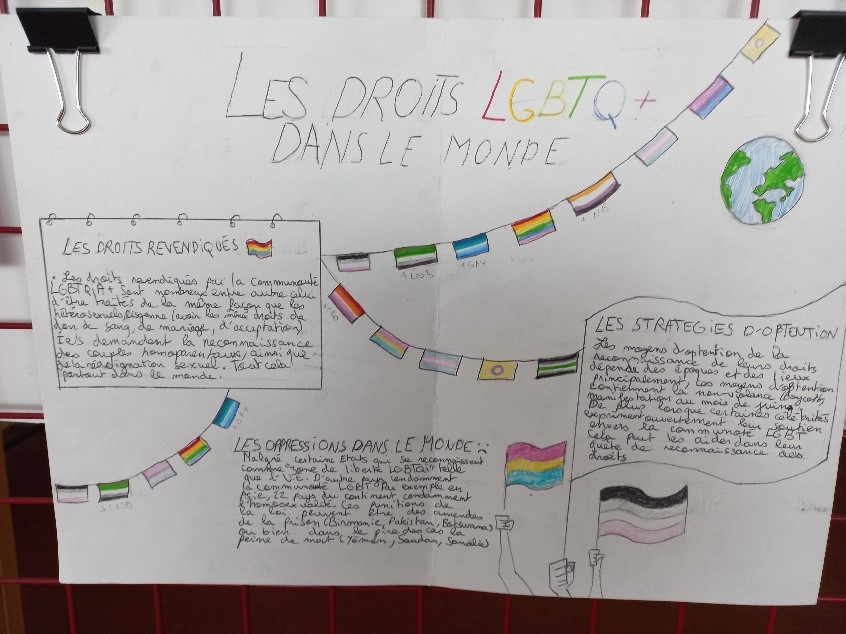 LES DROITS LGBTQ+
DANS LE MONDE
LES DROITS REVENDIQUÉS
• Les droits revendiqués par la communauté
LGBTQIA+ sont nombreux entre autre celui
d'être traités de la même façon que les
hétérosexuels, cisgenre (avoir les mêmes droits de
don de sang, de mariage, d'acceptation)
demandent la reconnaissance
des couples homoparentaux, ainsi que
de la sexuel. Tout cela
partout dans le monde.
LES STRATEGIES D'OPTENTION
Les moyens d'optention de la
reconnaissance de leurs droits
dépende des époques et des lieux
principalement, ces moyens d'optention
contiennent la non-violance (boycott,
manifestation au mois de juin).
De plus lorsque certaines célébrités
expriment ouvertement leur soutien
envers la communauté LGBT
cela peut les aider dans leur
quête de reconnaissance des
droits
LES OPPRESSIONS DANS LE MONDE :
Malgré certains Etats qui se reconnaissent
comme "zone de liberté LGBTQIA" telle
que l'U.E. D'autre pays condamnent
la communauté LGBT. Par exemple en
Asie, 22 pays du continent condamnent
l'homosexualité. Les punitions de
la loi peuvent être des amendes
de la prison (Birmanie, Pakistan, Botswana)
ou bien dans le pire des cas la
peine de mort (Yémen, Soudan, Somalie)